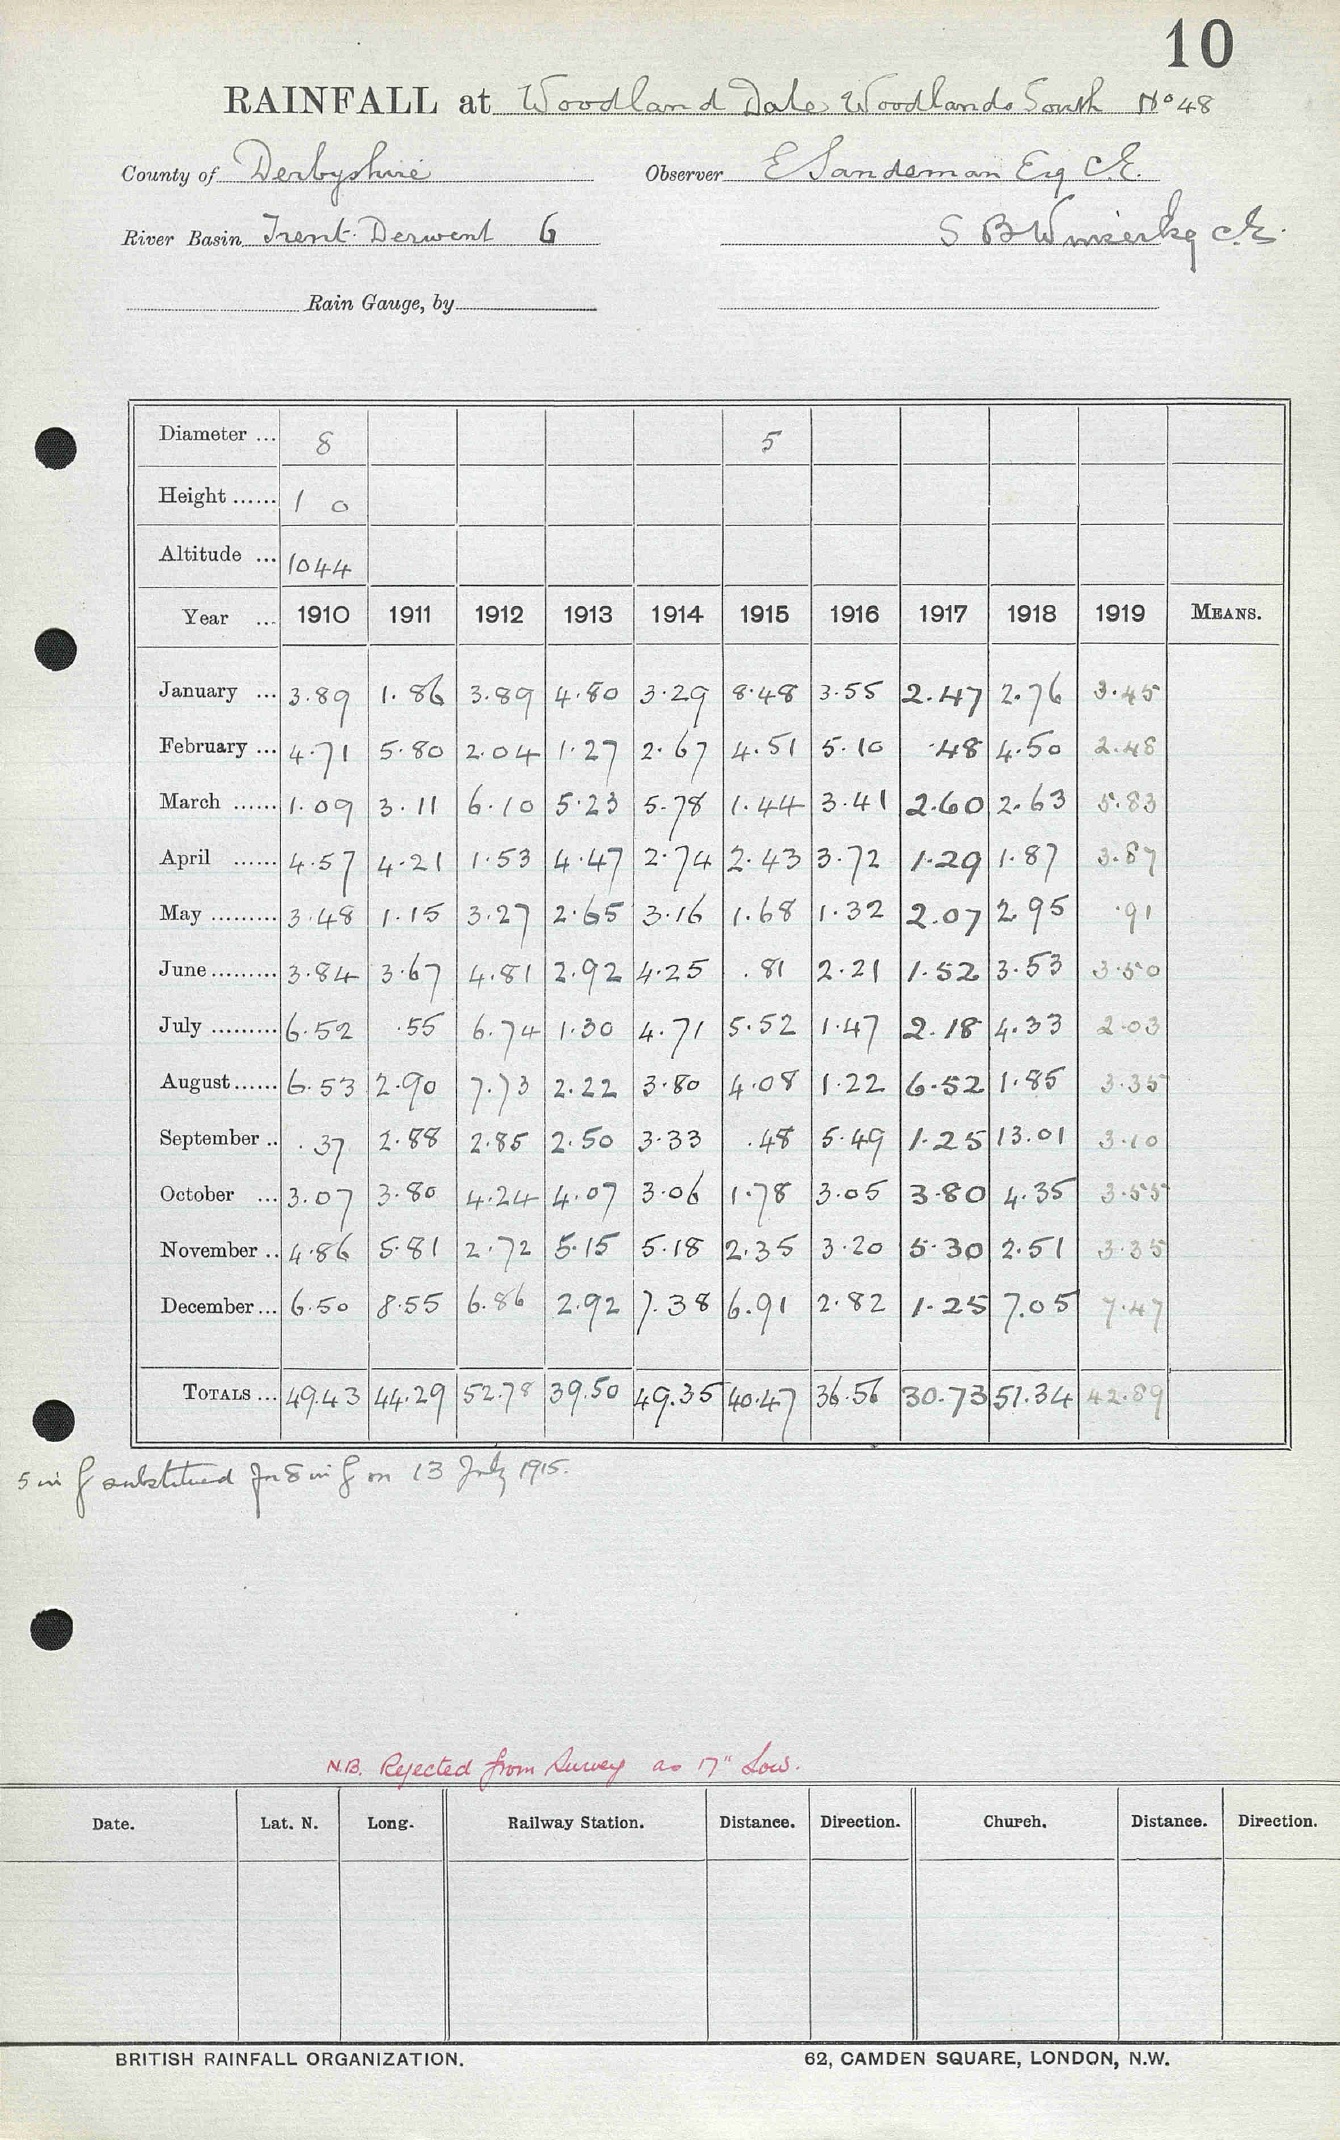 10
RAINFALL at Woodland Dale, Woodlands South No 48
County of Derbyshire Observer E Sandeman Esq C.E.
River Basin Trent. Derwent 6 S B W C.E.
Rain Gauge, by
Diameter ... 8 5
Height ...... 1 0
Altitude ... 1044
Year ... 1910 1911 1912 1913 1914 1915 1916 1917 1918 1919 MEANS.
January ... 3.89 1.86 3.89 4.80 3.29 8.48 3.55 2.47 2.76 3.45
February ... 4.71 5.80 2.04 1.27 2.67 4.51 5.10 .48 4.50 2.48
March ...... 1.09 3.11 6.10 5.23 5.78 1.44 3.41 2.60 2.63 5.83
April ...... 4.57 4.21 1.53 4.47 2.74 2.43 3.72 1.29 1.87 3.87
May ......... 3.48 1.15 3.27 2.65 3.16 1.68 1.32 2.07 2.95 .91
June ......... 3.84 3.67 4.81 2.92 4.25 .81 2.21 1.52 3.53 3.50
July ......... 6.52 .55 6.74 1.30 4.71 5.52 1.47 2.18 4.33 2.03
August ...... 6.53 2.90 7.73 2.22 3.80 4.08 1.22 6.52 1.85 3.35
September .. .37 2.88 2.85 2.50 3.33 .48 5.49 1.25 13.01 3.10
October ... 3.07 3.80 4.24 4.07 3.06 1.78 3.05 3.80 4.35 3.55
November .. 4.86 5.81 2.72 5.15 5.18 2.35 3.20 5.30 2.51 3.35
December ... 6.50 8.55 6.86 2.92 7.38 6.91 2.82 1.25 7.05 7.47
TOTALS ... 49.43 44.29 52.78 39.50 49.35 40.47 36.56 30.73 51.34 42.89
5 in g substituted for 8 in g on 13 July 1915.
N.B. Rejected from Survey as 17" Low.
Date. Lat. N. Long. Railway Station. Distance. Direction. Church. Distance. Direction.
BRITISH RAINFALL ORGANIZATION. 62, CAMDEN SQUARE, LONDON, N.W.